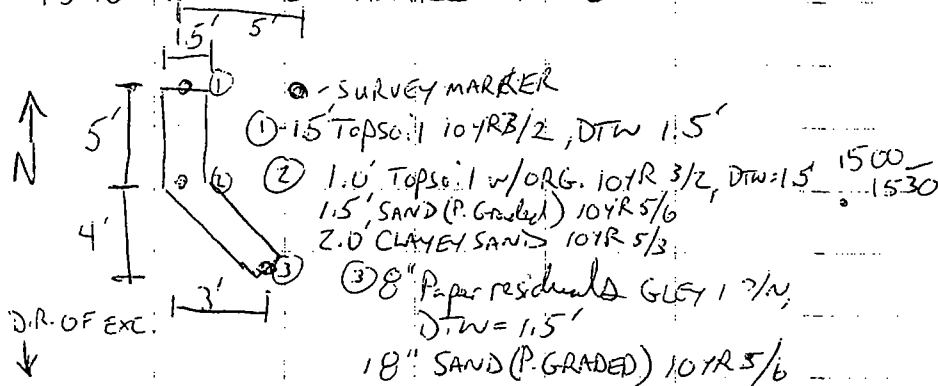 1.5' 5'
1.5'
① ⊗ - SURVEY MARKER
N 5' ① - 1.5' TOPSOIL 10YR3/2, DTW 1.5'
② ② 1.0' TOPSOIL W/ORG. 10YR 3/2, DTW=1.5' 1500
1530
1.5' SAND (P. Graded) 10YR 5/6
4' 2.0' CLAYEY SAND 10YR 5/3
③ ③ 8" Paper residuals GLEY 1 /N,
3'
DIR. OF EXC. DTW = 1.5'
18" SAND (P. GRADED) 10YR 5/6